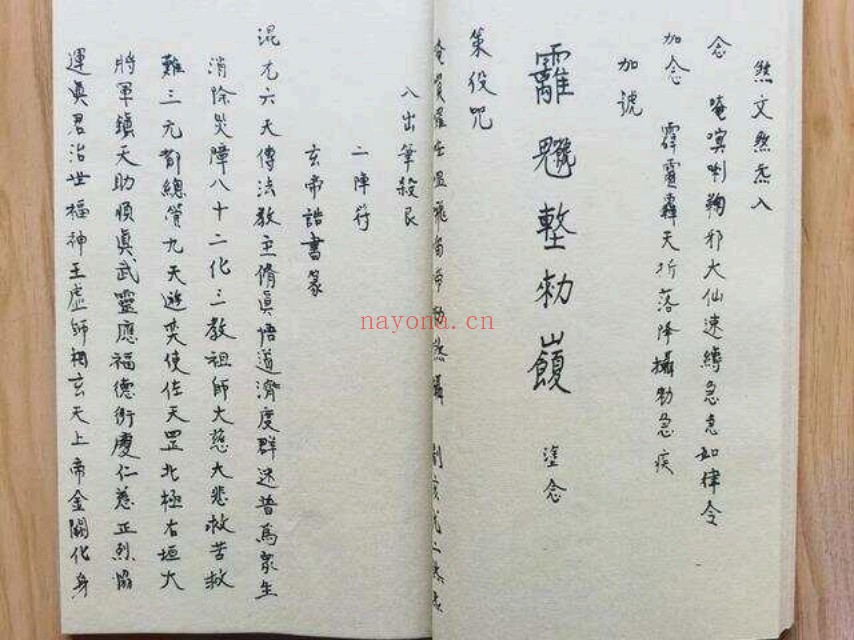 然文然炁入
念 唵嗼唎鞠邪大仙速縛急急如律令
加念 霹靂轟天折落降攝勑急疾
加號
塗念
策役咒
入出筆殺艮
二陣行
玄帝誥書篆
混元六天傳法教主脩眞悟道濟度群迷普爲衆生
消除災障八十二化三教祖師大慈大悲救苦救
難三元都總管九天遊奕使佐天罡北極右垣大
將軍鎮天助順眞武靈應福德衍慶仁慈正烈協
運眞君治世福神玉虛師相玄天上帝金闕化身
nayona.cn